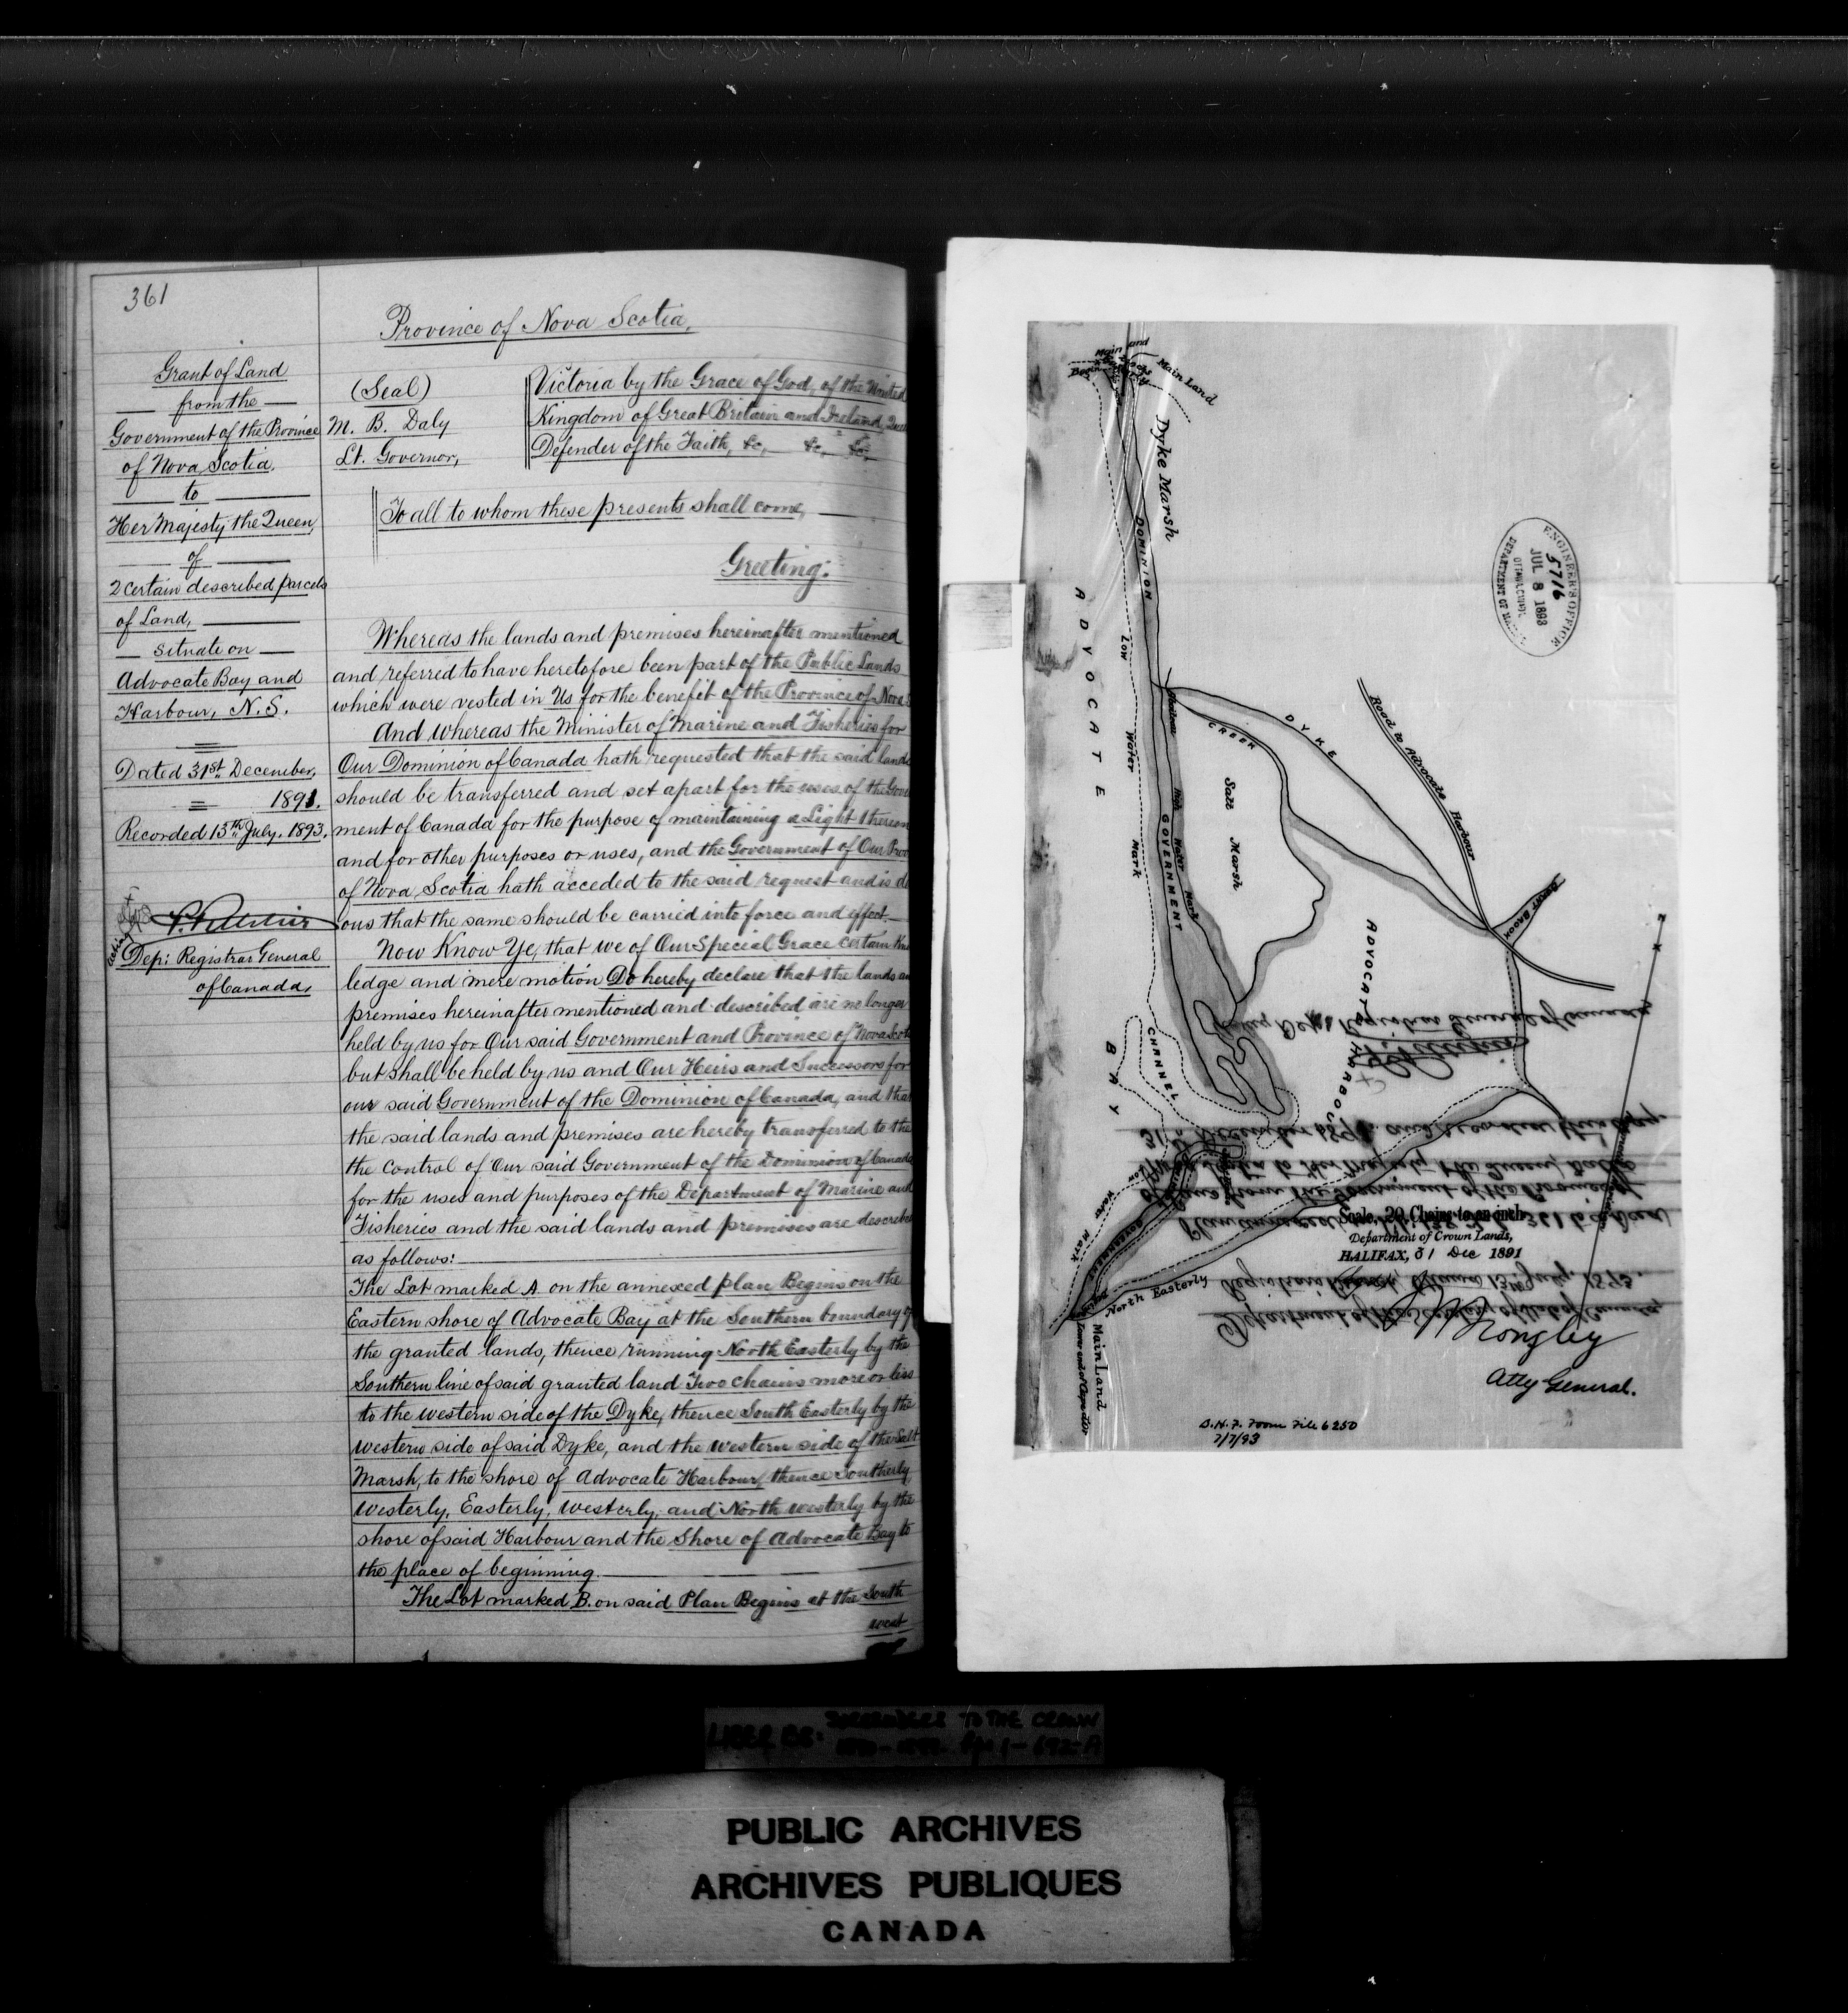 361
Grant of Land
from the
Government of the Province
of Nova Scotia
to
Her Majesty the Queen,
of
2 certain described parcels
of Land,
situate on
Advocate Bay and
Harbour, N.S.
Dated 31st December,
1891.
Recorded 15th July, 1893.
Acting
Dep: Registrar General
of Canada,
Province of Nova Scotia,
(Seal)
M. B. Daly
Lt. Governor,
Victoria by the Grace of God, of the United
Kingdom of Great Britain and Ireland, Queen
Defender of the Faith, &c, &c, &c,
To all to whom these presents shall come,
Greeting:
Whereas the lands and premises hereinafter mentioned
and referred to have heretofore been part of the Public Lands
which were vested in Us for the benefit of the Province of Nova S
And whereas the Minister of Marine and Fisheries for
Our Dominion of Canada hath requested that the said lands
should be transferred and set apart for the uses of the Gove
ment of Canada for the purpose of maintaining a Light thereon
and for other purposes or uses, and the Government of Our Prov
of Nova Scotia hath acceded to the said request and is d
ous that the same should be carried into force and effect.
Now Know Ye, that we of Our Special Grace certain Know
ledge and mere motion Do hereby declare that the lands an
premises hereinafter mentioned and described are no longer
held by us for Our said Government and Province of Nova Scoti
but shall be held by us and Our Heirs and Successors for
our said Government of the Dominion of Canada, and that
the said lands and premises are hereby transferred to the
the control of Our said Government of the Dominion of Canada
for the uses and purposes of the Department of Marine and
Fisheries and the said lands and premises are described
as follows:
The Lot marked A on the annexed plan Begins on the
Eastern shore of Advocate Bay at the Southern boundary of
the granted lands, thence running North Easterly by the
Southern line of said granted land Two chains more or less
to the western side of the Dyke, thence South Easterly by the
western side of said Dyke, and the western side of the Salt
Marsh, to the shore of Advocate Harbour, thence Southerly,
Westerly, Easterly, Westerly, and North westerly by the
shore of said Harbour and the Shore of Advocate Bay to
the place of beginning.
The Lot marked B. on said Plan Begins at the South
west
Main Land
Dyke Marsh
DOMINION
GOVERNMENT
ADVOCATE
BAY
Low Water Mark
High Water Mark
CREEK
DYKE
Salt Marsh
Road to Advocate Harbour
BROOK
ADVOCATE HARBOUR
CHANNEL
Low Water Mark
GOVERNMENT
North Easterly
Main Land
N
ENGINEER'S OFFICE
5716
JUL 8 1893
DEPARTMENT OF
Scale, 20 Chains to an inch
Department of Crown Lands,
HALIFAX, 31 Dec 1891
Longley
Atty General.
7/7/93
Department of the Secretary of State of Canada,
Registrar's Branch, Ottawa 15th July, 1893.
31st December 1891. and recorded this day.
Dep. Registrar General of Canada
SURRENDERS TO THE CROWN
PUBLIC ARCHIVES
ARCHIVES PUBLIQUES
CANADA